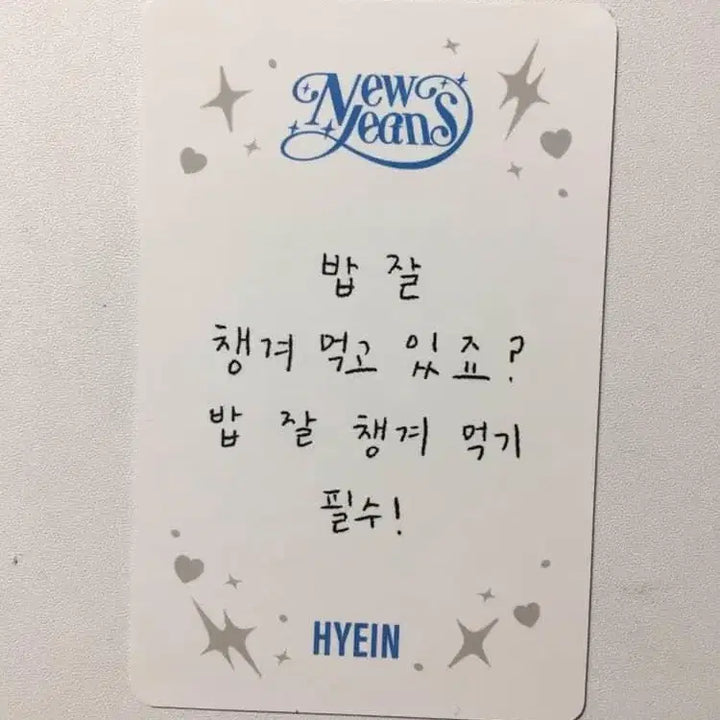 New
Jeans
밥 잘
챙겨 먹고 있죠?
밥 잘 챙겨 먹기
필수!
HYEIN